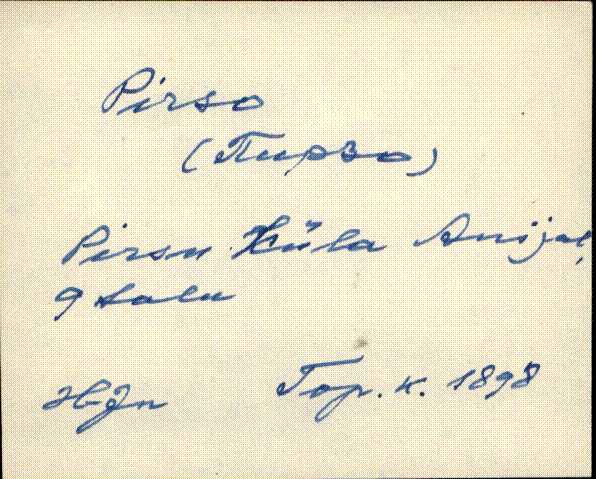 Pirso
(Пирзо)
Pirsu küla Anijal,
9 talu
HJn Гор. к. 1898